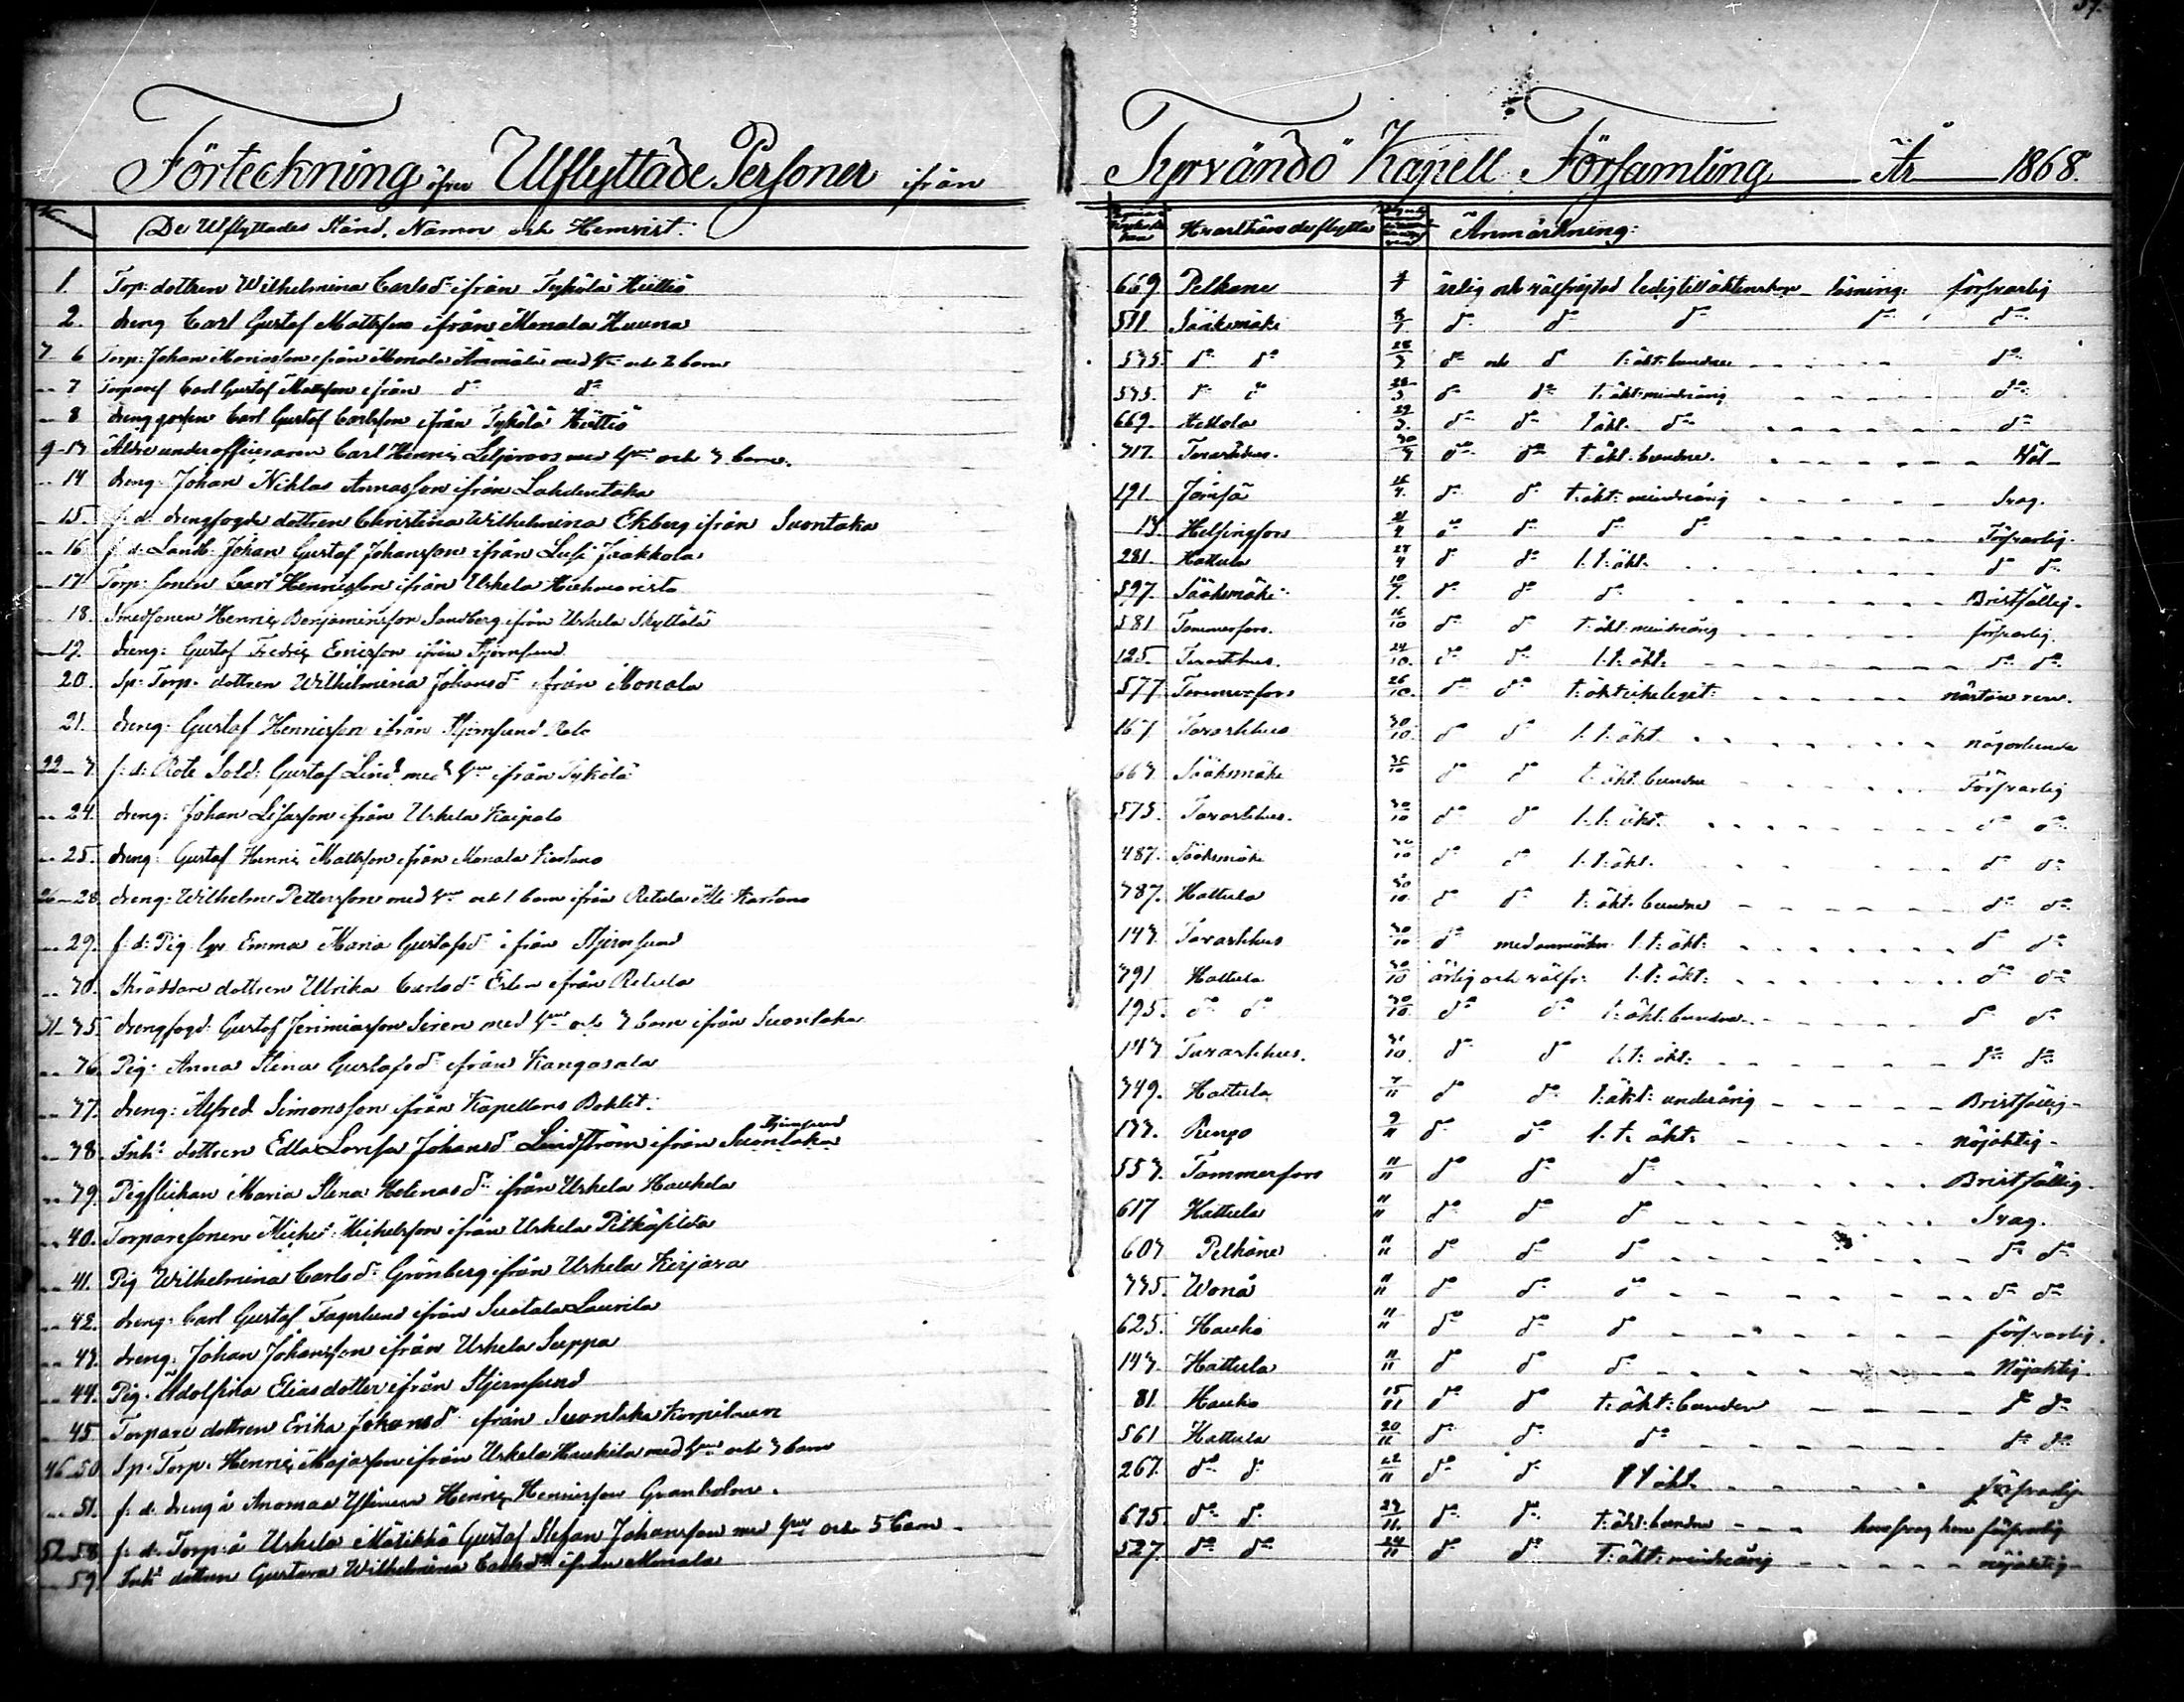 37.
Förteckning öfver Utflyttade Personer ifrån Tyrvändö Kapell Församling År 1868.
De Utflyttades Stånd, Namn och Hemvist. Hvarthän de flyttat Anmärkning:
1. Torp: dottren Wilhelmina Carlsdr ifrån Tykölä Hüttiö 669 Pelkäne ärlig och välfrejdad ledig till äktenskap läsning: försvarlig
2. dreng Carl Gustaf Mattsson ifrån Monala Huuna 511 Sääksmäki 5/7 do do do do do
3 6 Torp: Johan ifrån Monala Ämmälä med hu och 2 barn 535. do do 28/3 do och do t: äkt: bundne do
7 Torparef Carl Gustaf Mattsson ifrån do do 535. do do 28/3 do do t: äkt: mindreårig do
8 drenggossen Carl Gustaf Carlsson ifrån Tykölä Hüttiö 669. Hattola 29/3. do do t äkt. do do
9-13 Äldre underofficeraren Carl Henric Liljeroos med hu och 3 barn. 317. Tavastehus. 30/3 do do t. äkt. bundne. Wäl
14 dreng. Johan Niklas Annasson ifrån Lahdentaka 191 Jämsä 16/4. do do t: äkt: mindreårig Svag.
15. f. d. drengfogde dottren Christina Wilhelmina Ekberg ifrån Suontaka 13. Helsingfors 21/4 do do do do Försvarlig.
16 f. d. Landb. Johan Gustaf Johansson ifrån Lusi Jaakkola 281. Hattula 27/4 do do l. t: äkt. do do
17 Torp: sonen Carl Henricsson ifrån Uskela 597. Sääksmäki 10/7. do do do Bristfällig.
18. Smedsonen Henric Benjaminsson Sandberg ifrån Uskela Skyttälä 581 Tammerfors. 16/10 do do t: äkt: mindreårig försvarlig.
19. dreng: Gustaf Fredric Ericsson ifrån Stjernsund 125. Tavastehus. 24/10. do do l. t: äkt: do do
20. Sp: Torp. dottren Wilhelmina Johansdr ifrån Monala 577 Tammerfors 26/10. do do t: äkt: nästan ren.
21. dreng: Gustaf Henricsson ifrån Stjernsund 167 Tavastehus 30/10. do do l. t. äkt. någorlunda
22-3 f: d: Rote Sold: Gustaf Lind med hu ifrån Tykölä 663. Sääksmäki 30/10 do do t. äkt. bundne Försvarlig
24. dreng: Johan Lisasson ifrån Uskela Kaipalo 573. Tavastehus. 30/10 do do l. t. äkt. do do
25. dreng: Gustaf Henric Mattsson ifrån Monala Kartano 487. Sääksmäki 30/10 do do l. t: äkt. do do
26-28 dreng: Wilhelm Pettersson med hu och 1 barn ifrån Retula Ali Kartano 387. Hattula 30/10. do do t. äkt. bundne do do
29. f: d: Pig Emma Maria Gustafsdr ifrån Stjernsund 143. Tavastehus 30/10 do med anmärkn l: t: äkt: do do
30. Skräddare dottren Ulrika Carlsdr ifrån Retula 391 Hattula 30/10 ärlig och välfr: l. t: äkt: do do
31-35 drengfogd: Gustaf Jerimiasson Siren med hu och 3 barn ifrån Suontaka 195. do do 30/10. do do t: äkt: bundne do do
36 Pig: Anna Stina Gustafsdr ifrån Kangasala 143 Tavastehus. 31/10. do do l. t: äkt: do do
37. dreng: Alfred Simonsson ifrån Kapellans Bohlet: 349. Hattula 7/11 do do t: äkt: underårig Bristfällig
Stjernsund
38. Inh: dottren Edla Lovisa Johansdr Lindström ifrån Suontaka 133. Rengo 9/11 do do l. t. äkt: nöjaktig
39. Pigflickan Maria Stina Helenasdr ifrån Uskela Haukela 553. Tammerfors 11/11 do do do Bristfällig.
40. Torparesonen Michel Michelsson ifrån Uskela Pitkäsilda 617 Hattula 11/11 do do do Svag.
41. Pig Wilhelmina Carlsdr Grönberg ifrån Uskela Kirjava 603 Pelkäne 11/11 do do do do do
42. dreng: Carl Gustaf Fagerlund ifrån Suotala Laurila 335. Wonå 11/11 do do do do do
43. dreng: Johan Johansson ifrån Uskela Seppä 625. Hauho 11/11 do do do försvarlig.
44. Pig. Adolfina Eliasdotter ifrån Stjernsund 143. Hattula 11/11 do do do Nöjaktig.
45 Torpare dottren Erika Johansdr ifrån Suontaka 81. Hauho 15/11 do do t: äkt: bunden do do
46-50. Sp: Torp. Henric Majasson ifrån Uskela Haukila med hu och 3 barn 561 Hattula 20/11 do do do do do
51. f. d. dreng å Anomaa Henric Henricsson Granholm. 267. do do 22/11 do do l t äkt. försvarlig
52-58 f. d. Torp: å Uskela Mätikkö Gustaf Stefan Johansson med hu och 5 barn 675. do do 23/11. do do t: äkt: bundne han svag hon försvarlig
59 Inh: dottren Gustava Wilhelmina Carlsdr ifrån Monala 527. do do 24/11 do do t: äkt: mindreårig nöjaktig